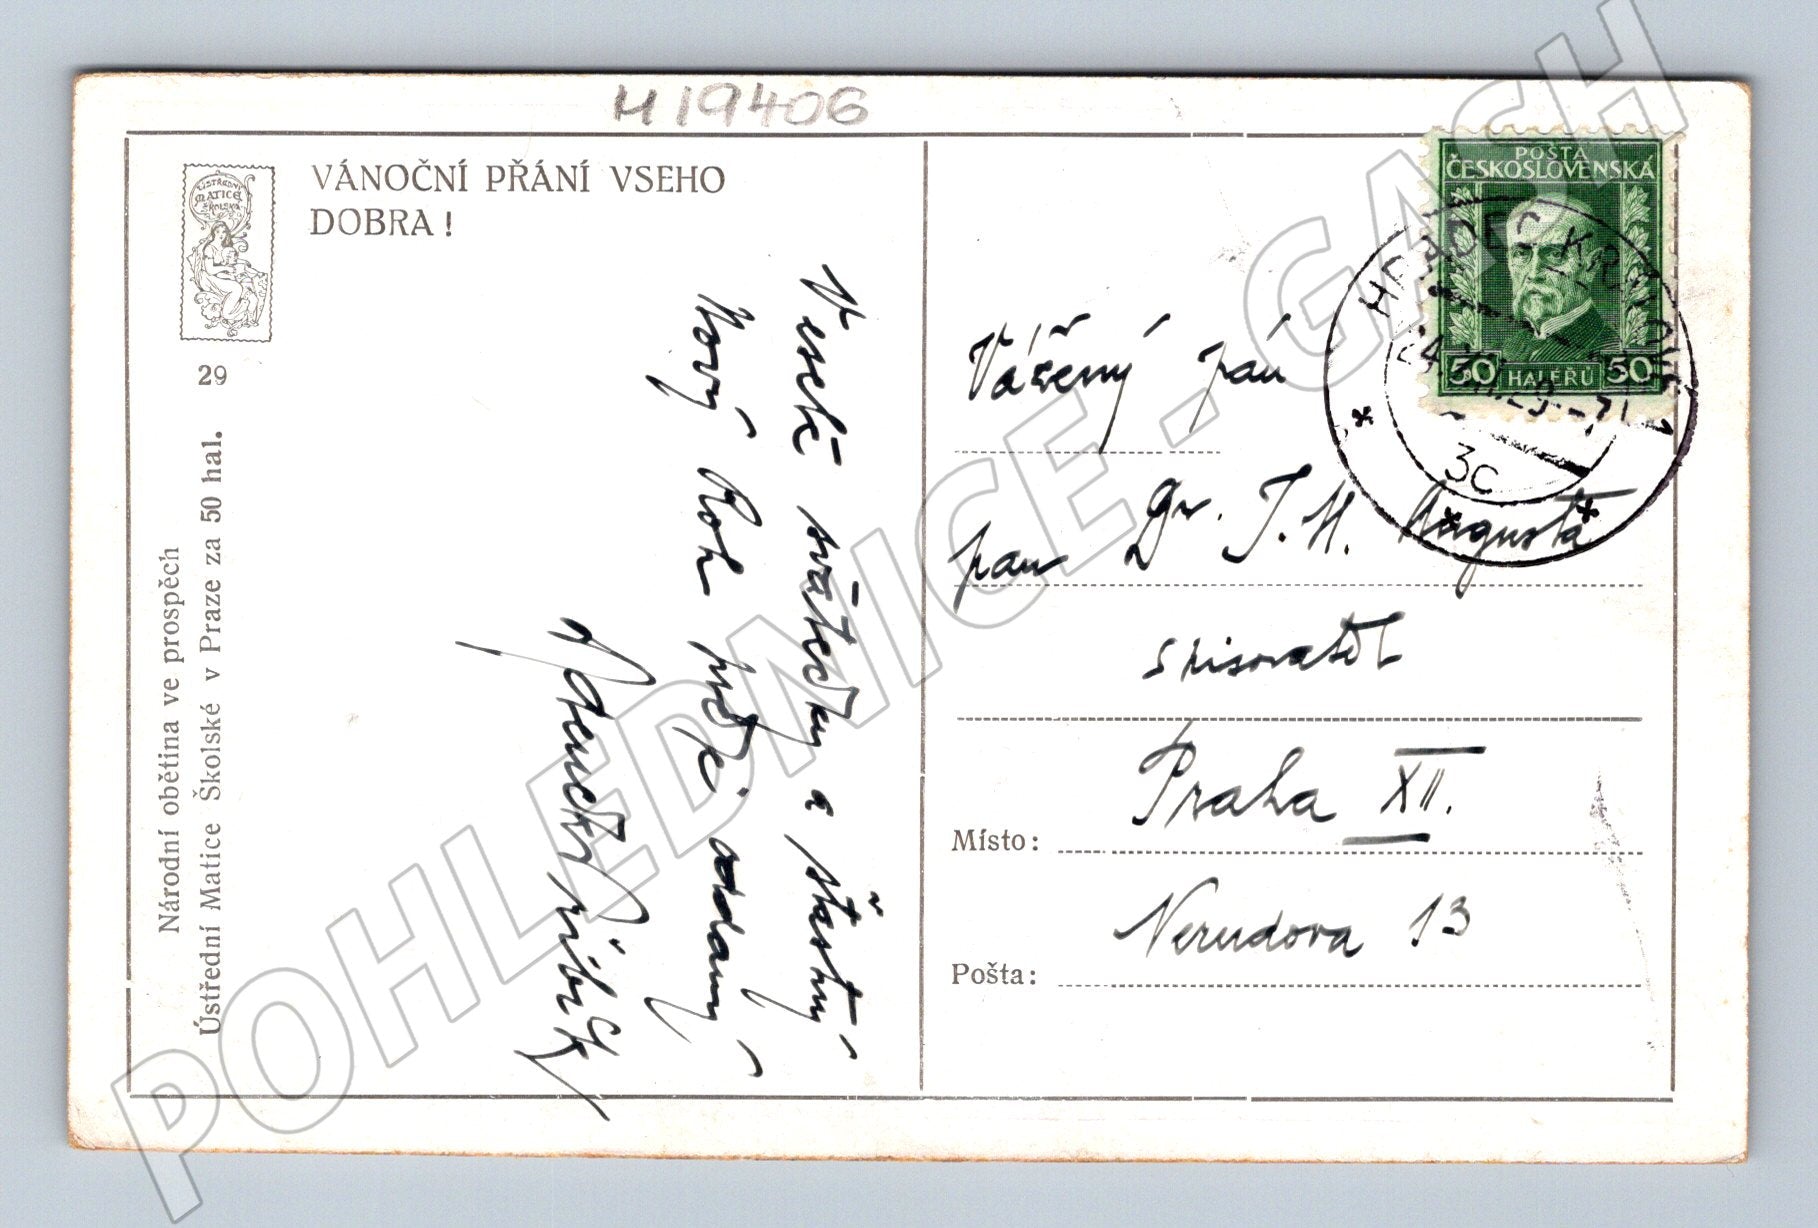 H19406
VÁNOČNÍ PŘÁNÍ VSEHO
DOBRA!
ÚSTŘEDNÍ
MATICE
ŠKOLSKÁ
29
Národní obětina ve prospěch
Ústřední Matice Školské v Praze za 50 hal.
Veselé svátečky a šťastný
Nový Rok přeje oddaný
POŠTA
ČESKOSLOVENSKÁ
50 HALÉŘŮ 50
HRADEC KRÁLOVÉ 1
24.XII.29
3c
Vážený pán
pan Dr. J. M. Augusta
spisovatel
Praha XII.
Místo:
Nerudova 13
Pošta:
POHLEDNICE - GASH